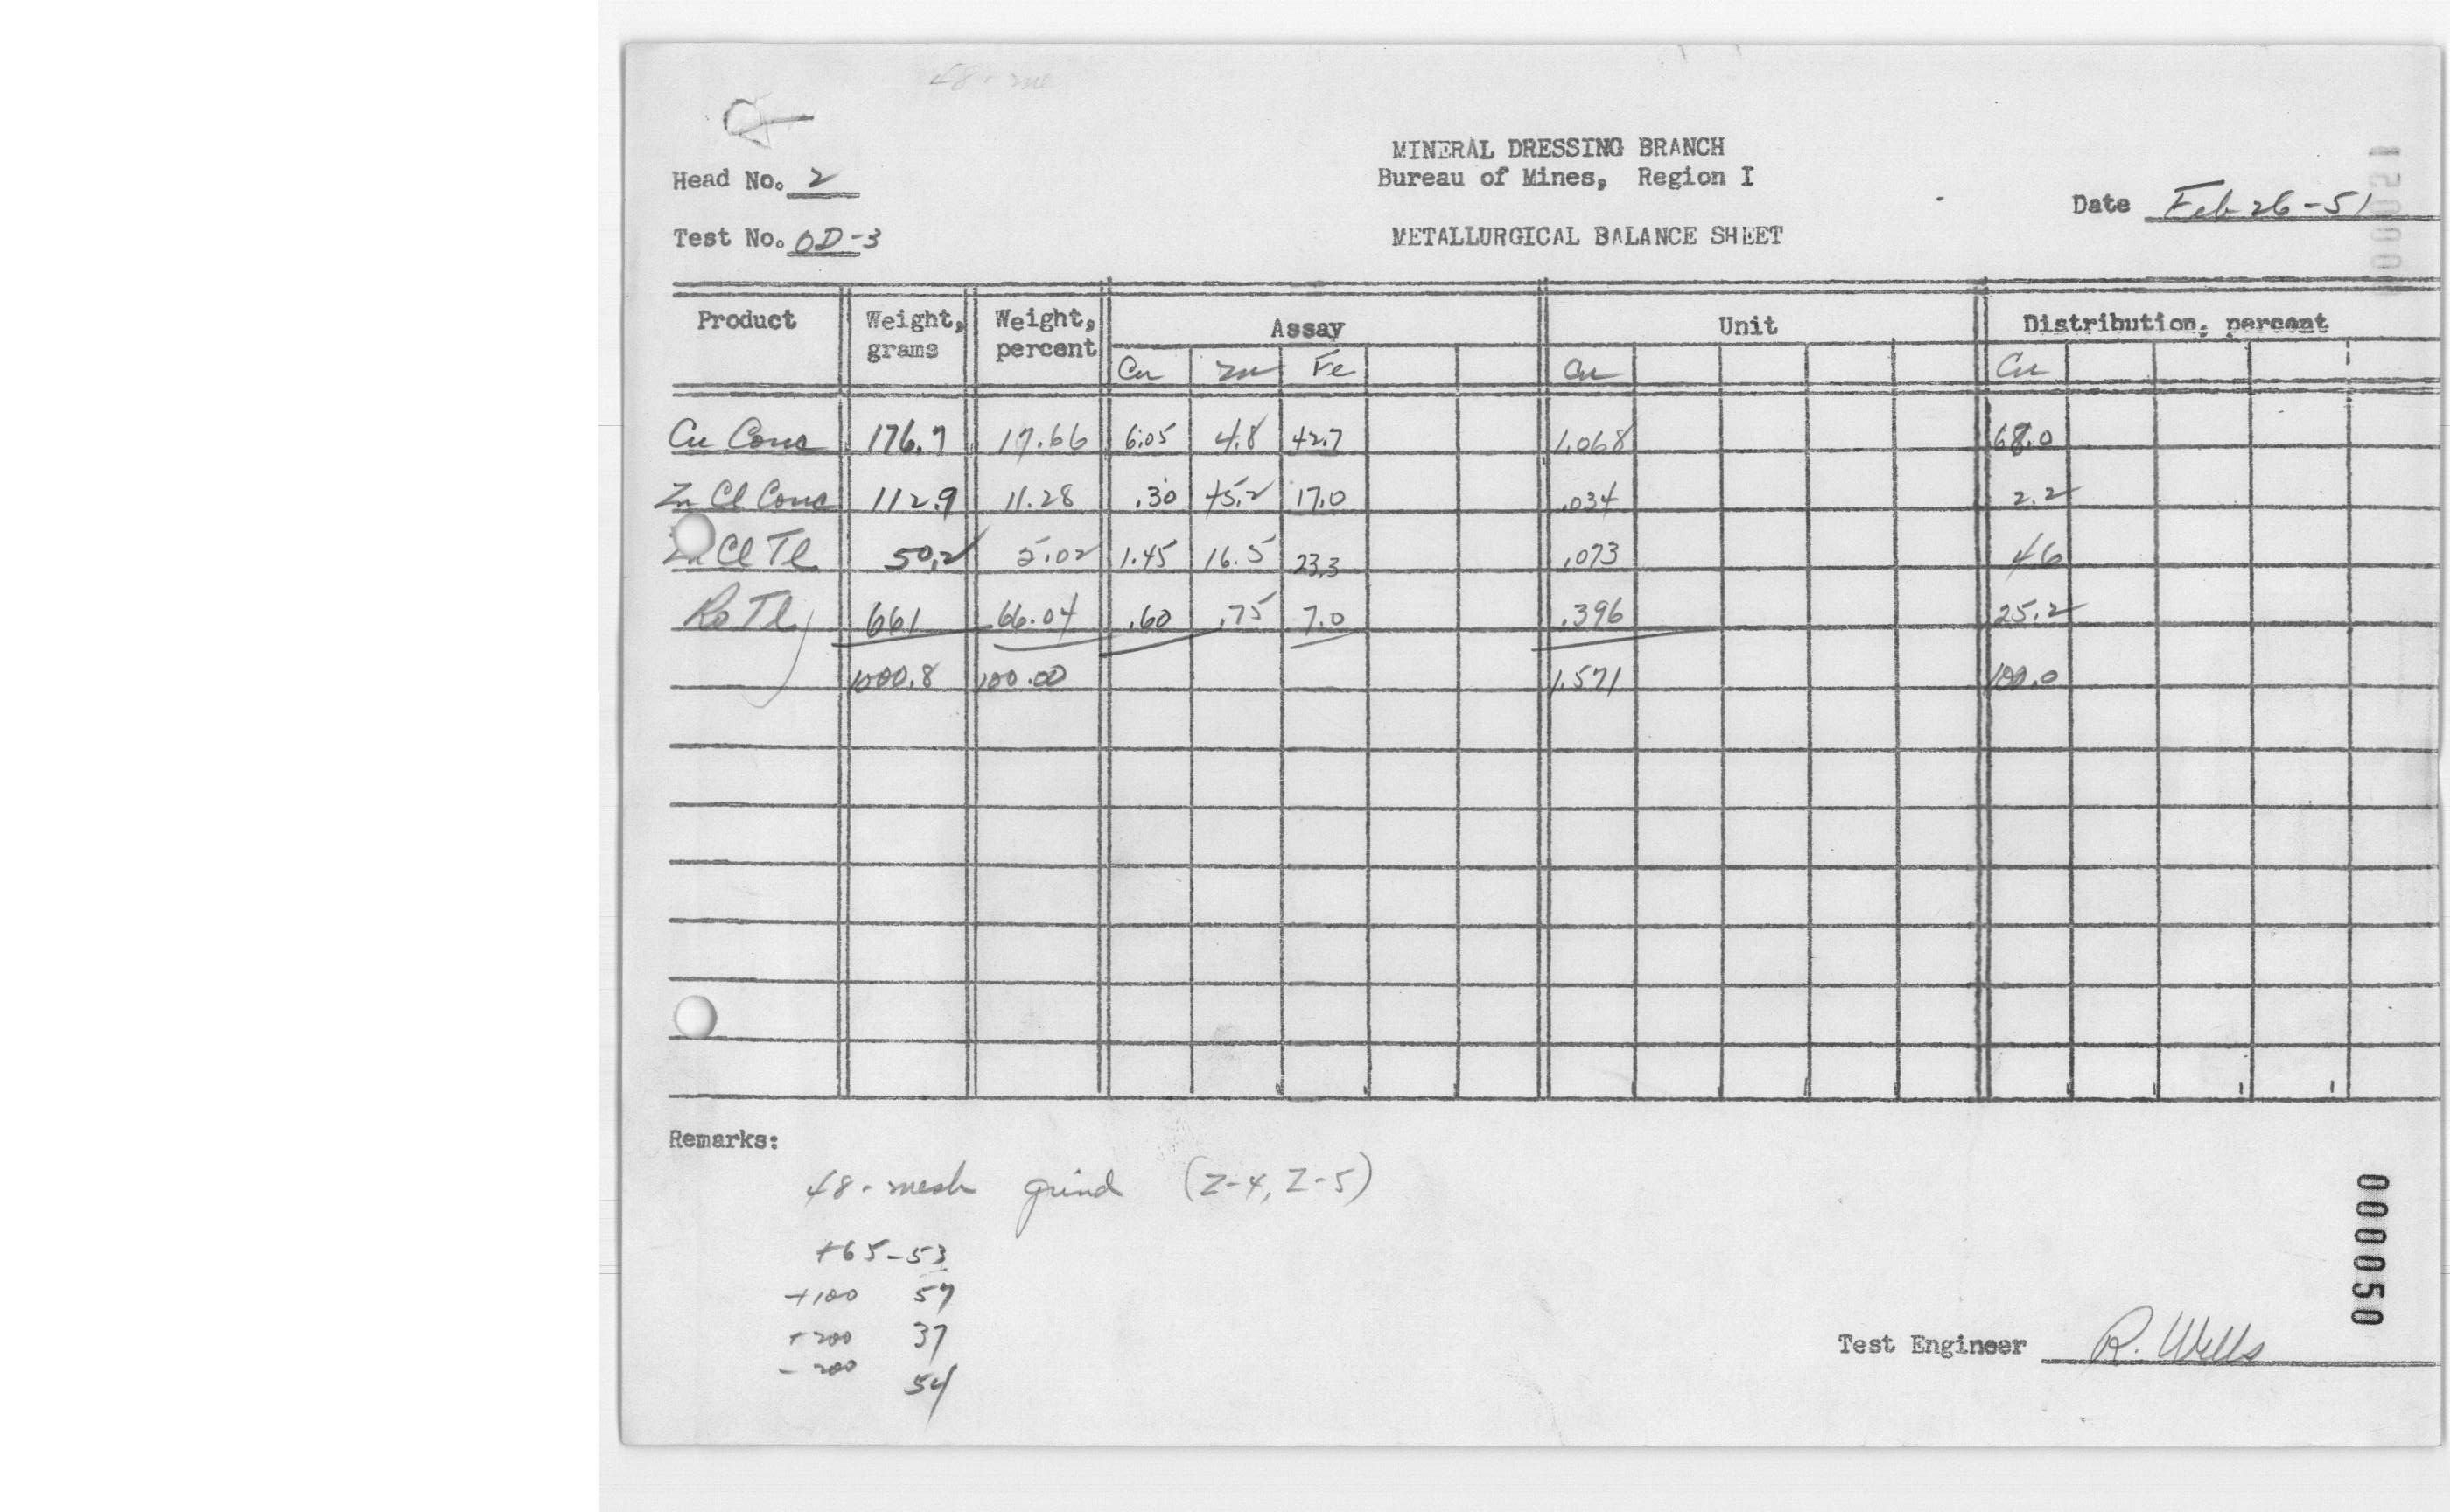 48-me
MINERAL DRESSING BRANCH
Head No. 2
Bureau of Mines, Region I
Date Feb 26-51
Test No. OD-3
METALLURGICAL BALANCE SHEET
Product Weight, grams Weight, percent Assay Unit Distribution, percent
Cu Zn Fe Cu Cu
Cu Conc 176.7 17.66 6.05 4.8 42.7 1.068 68.0
Zn Cl Conc 112.9 11.28 .30 45.2 17.0 .034 2.2
Zn Cl Tl 50.2 5.02 1.45 16.5 23.3 .073 4.6
Ro Tl 661 66.04 .60 .75 7.0 .396 25.2
1000.8 100.00 1.571 100.0
Remarks:
48-mesh grind (Z-4, Z-5)
+65-53
+100 57
+200 37
-200 54
Test Engineer R. Wells
000050
000051